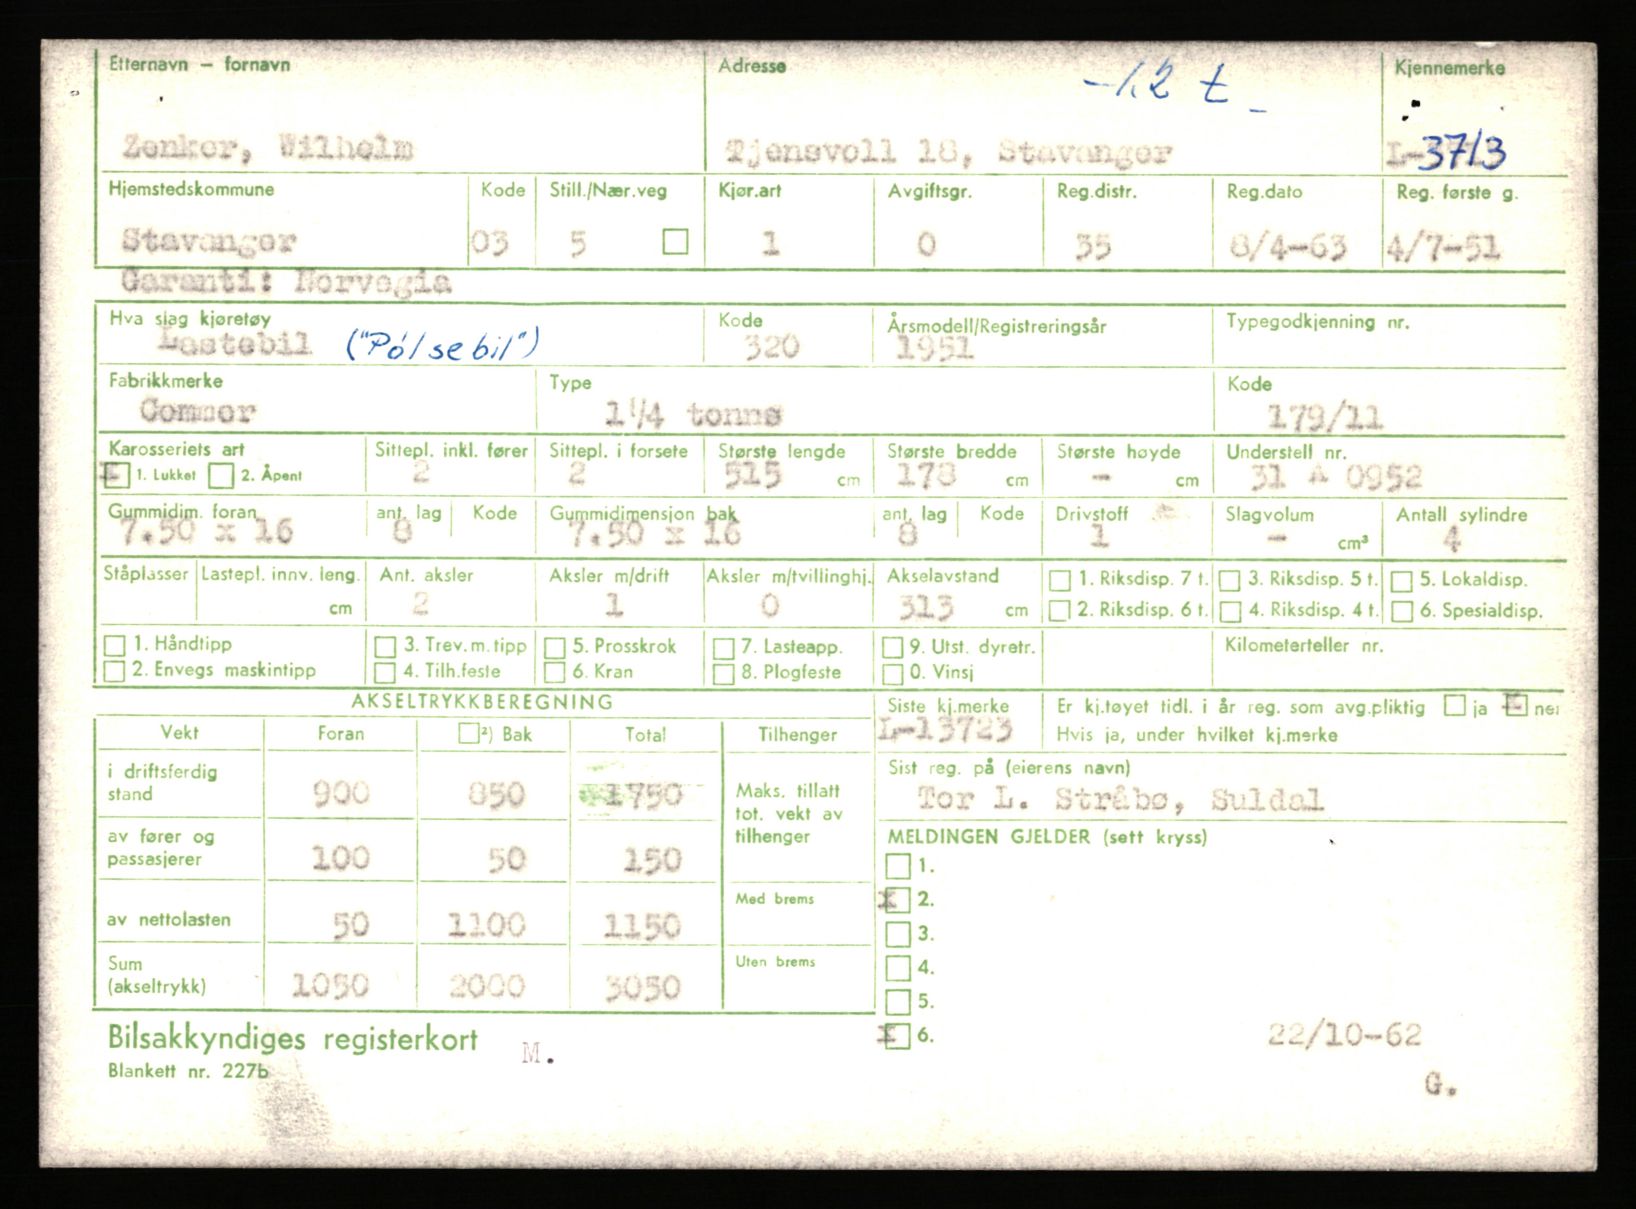 Etternavn – fornavn Adresse -1.2 t - Kjennemerke
Zenker, Wilhelm Tjensvoll 18, Stavanger L-3713
Hjemstedskommune Kode Still./Nær.veg Kjør.art Avgiftsgr. Reg.distr. Reg.dato Reg. første g.
Stavanger 03 5 1 0 35 8/4-63 4/7-51
Garanti: Norvegia
Hva slag kjøretøy Kode Årsmodell/Registreringsår Typegodkjenning nr.
Lastebil ("Pølsebil") 320 1951
Fabrikkmerke Type Kode
Commer 1 1/4 tonns 179/11
Karosseriets art Sittepl. inkl. fører Sittepl. i forsete Største lengde Største bredde Største høyde Understell nr.
X 1. Lukket 2. Åpent 2 2 515 cm 178 cm - cm 31 A 0952
Gummidim. foran ant. lag Kode Gummidimensjon bak ant. lag Kode Drivstoff Slagvolum Antall sylindre
7.50 x 16 8 7.50 x 16 8 1 - cm³ 4
Ståplasser Lastepl. innv. leng. Ant. aksler Aksler m/drift Aksler m/tvillinghj. Akselavstand 1. Riksdisp. 7 t. 3. Riksdisp. 5 t. 5. Lokaldisp.
cm 2 1 0 313 cm 2. Riksdisp. 6 t. 4. Riksdisp. 4 t. 6. Spesialdisp.
1. Håndtipp 3. Trev. m. tipp 5. Prosskrok 7. Lasteapp. 9. Utst. dyretr. Kilometerteller nr.
2. Envegs maskintipp 4. Tilh.feste 6. Kran 8. Plogfeste 0. Vinsj
AKSELTRYKKBEREGNING Siste kj.merke Er kj.tøyet tidl. i år reg. som avg.pliktig ja X nei
Vekt Foran ²) Bak Total Tilhenger L-13723 Hvis ja, under hvilket kj.merke
i driftsferdig stand 900 850 1750 Maks. tillatt tot. vekt av tilhenger Sist reg. på (eierens navn)
Tor L. Stråbø, Suldal
av fører og passasjerer 100 50 150 MELDINGEN GJELDER (sett kryss)
1.
av nettolasten 50 1100 1150 Med brems X 2.
3.
Sum (akseltrykk) 1050 2000 3050 Uten brems 4.
5.
Bilsakkyndiges registerkort M. X 6. 22/10-62
Blankett nr. 227b G.